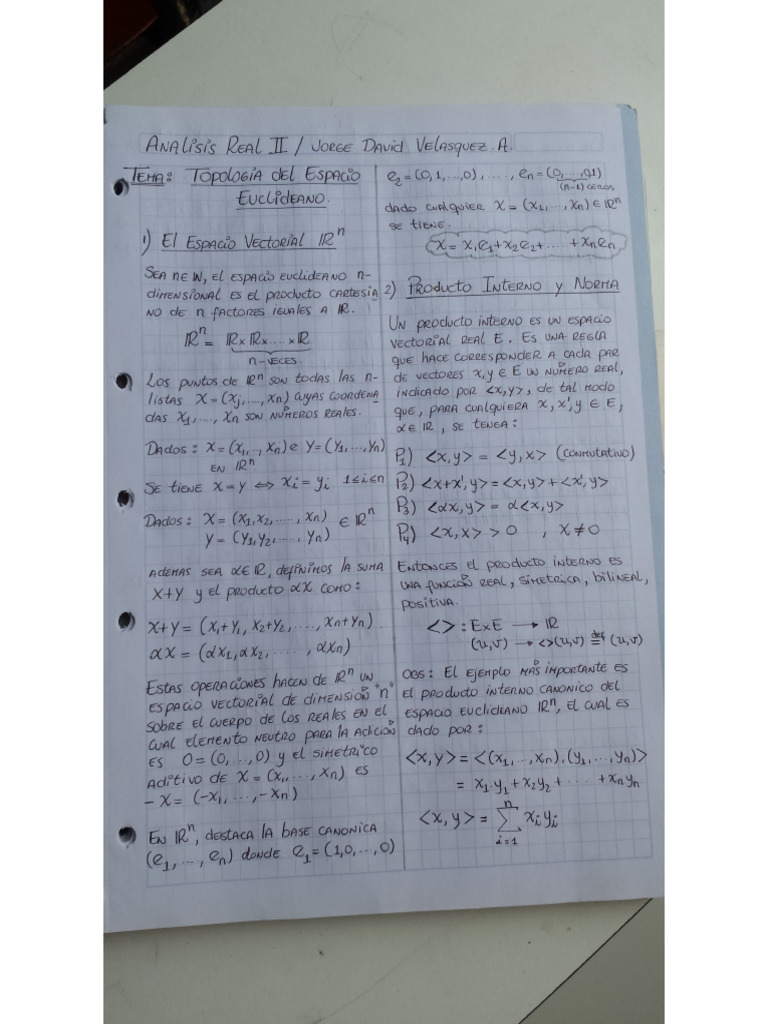 ANALISIS REAL II / JORGE DAVID VELASQUEZ. A.
TEMA: TOPOLOGIA DEL ESPACIO
EUCLIDEANO.
1) EL ESPACIO VECTORIAL ℝⁿ
SEA n ∈ ℕ, EL ESPACIO EUCLIDEANO n-
DIMENSIONAL ES EL PRODUCTO CARTESIA
NO DE n FACTORES IGUALES A ℝ.
ℝⁿ = ℝ×ℝ×.....×ℝ
n-VECES.
LOS PUNTOS DE ℝⁿ SON TODAS LAS n-
LISTAS X=(xj,...,xn) CUYAS COORDENA
DAS X1,..., Xn SON NÚMEROS REALES.
DADOS: X=(x1,..., xn) e Y=(Y1,...,Yn)
EN ℝⁿ
SE TIENE X=Y ⇔ Xi=Yi 1≤i≤n
DADOS: X=(x1,x2,....., xn) ∈ ℝⁿ
Y=(Y1,Y2,....., Yn)
ADEMAS SEA α∈ℝ, DEFINIMOS LA SUMA
X+Y Y EL PRODUCTO αX COMO:
X+Y = (X1+Y1, X2+Y2,....., Xn+Yn)
αX = (αX1,αX2,....., αXn)
ESTAS OPERACIONES HACEN DE ℝⁿ UN
ESPACIO VECTORIAL DE DIMENSIÓN "n"
SOBRE EL CUERPO DE LOS REALES EN EL
CUAL ELEMENTO NEUTRO PARA LA ADICIÓN
ES 0=(0,...,0) Y EL SIMETRICO
ADITIVO DE X=(X1,....., Xn) ES
-X=(-X1,....,-Xn)
EN ℝⁿ, DESTACA LA BASE CANONICA
(e1,..., en) DONDE e1=(1,0,...,0)
e2=(0,1,...,0),....., en=(0,...,0,1)
(n-1) CEROS
DADO CUALQUIER X=(X1,...,Xn)∈ℝⁿ
SE TIENE.
X=X1e1+X2e2+.....+Xnen
2) PRODUCTO INTERNO Y NORMA
UN PRODUCTO INTERNO ES UN ESPACIO
VECTORIAL REAL E. ES UNA REGLA
QUE HACE CORRESPONDER A CADA PAR
DE VECTORES X,Y ∈ E UN NÚMERO REAL,
INDICADO POR <X,Y>, DE TAL MODO
QUE, PARA CUALQUIERA X, X',Y ∈ E,
α∈ℝ, SE TENGA:
P1) <X,Y> = <Y,X> (CONMUTATIVO)
P2) <X+X',Y> = <X,Y> + <X',Y>
P3) <αX,Y> = α<X,Y>
P4) <X,X> > 0 , X≠0
ENTONCES EL PRODUCTO INTERNO ES
UNA FUNCIÓN REAL, SIMETRICA, BILINEAL,
POSITIVA.
<> : E×E → ℝ
(u,v) → <>(u,v) def≡ (u,v)
OBS: EL EJEMPLO MÁS IMPORTANTE ES
EL PRODUCTO INTERNO CANONICO DEL
ESPACIO EUCLIDEANO ℝⁿ, EL CUAL ES
DADO POR:
<X,Y> = <(X1,...,Xn),(Y1,....,Yn)>
= X1.Y1+X2Y2+.....+XnYn
<X,Y> = ∑ⁿi=1 XiYi